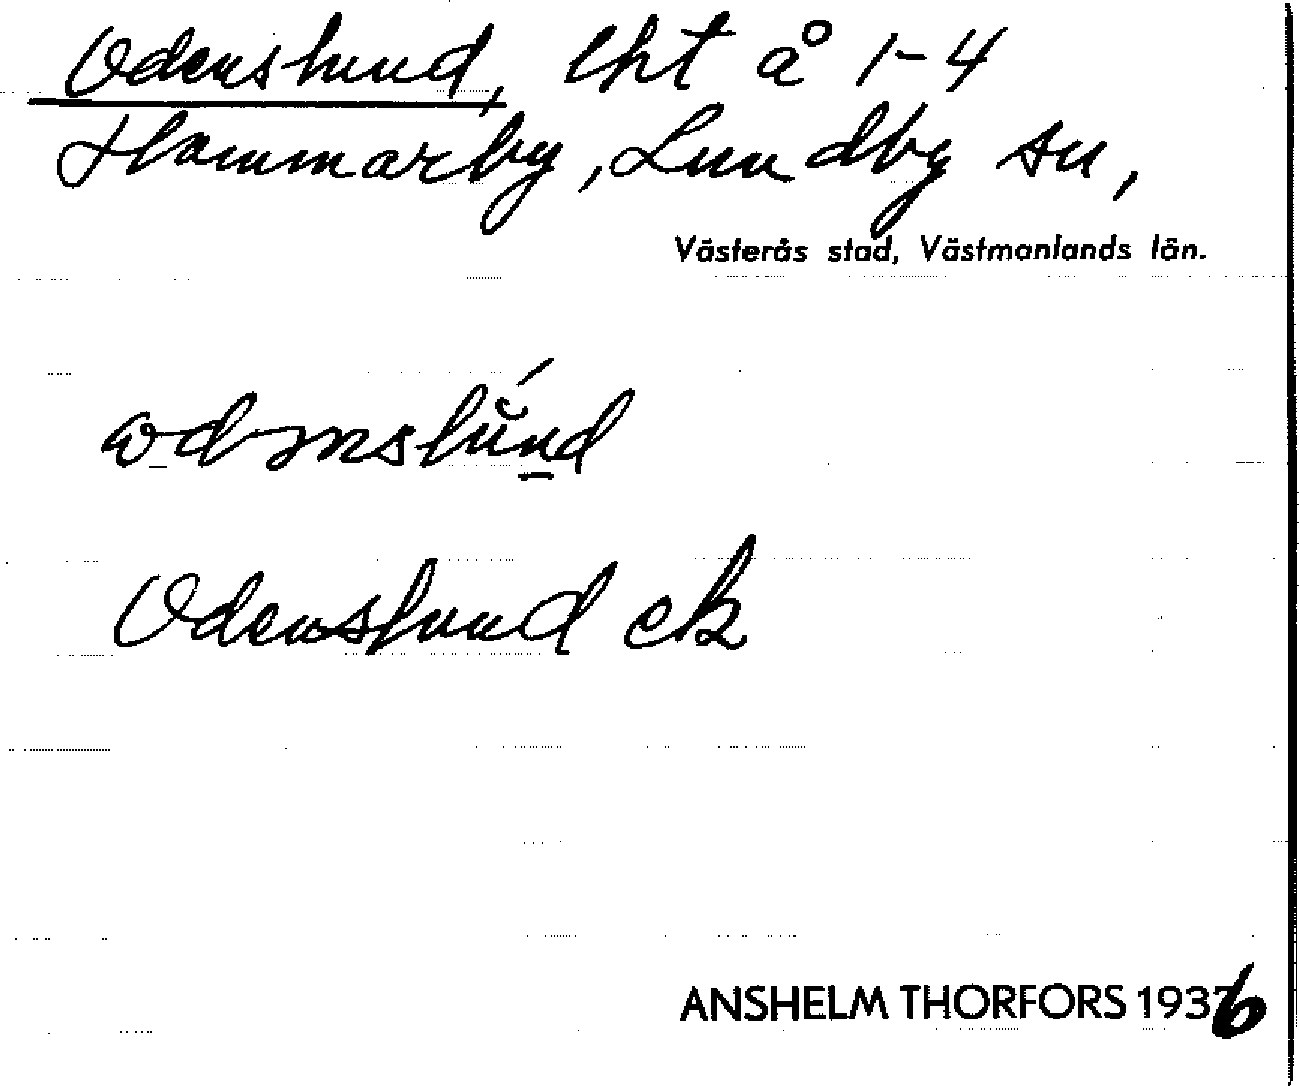 Odenslund, lht å 1-4
Hammarby, Lundby sn,
Västerås stad, Västmanlands län.
Odenslund ek
ANSHELM THORFORS 1936